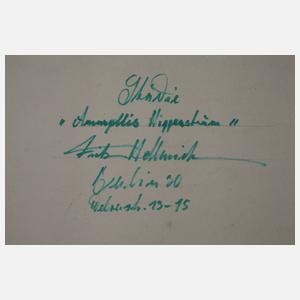 Studie
"Amaryllis Hippeastrum"
Fritz Hellmich
Berlin 30
13-15